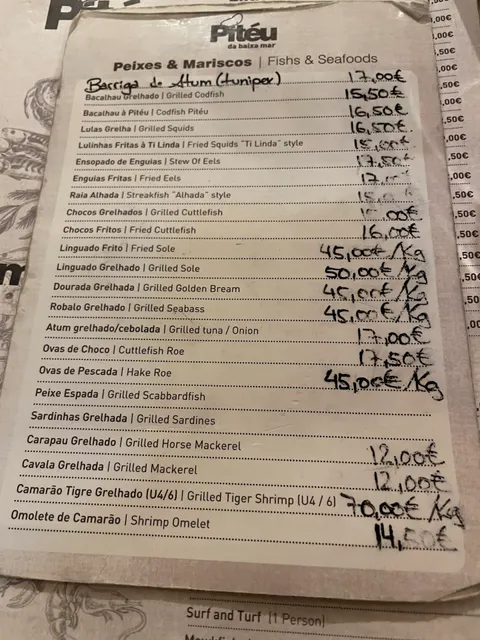 Pitéu
da baixa mar
Peixes & Mariscos | Fishs & Seafoods
Barriga de Atum (tuniper) 17,00€
Bacalhau Grelhado | Grilled Codfish 15,50€
Bacalhau à Pitéu | Codfish Pitéu 16,50€
Lulas Grelha | Grilled Squids 16,50€
Lulinhas Fritas à Ti Linda | Fried Squids "Ti Linda" style 15,00€
Ensopado de Enguias | Stew Of Eels 17,50€
Enguias Fritas | Fried Eels
Raia Alhada | Streakfish "Alhada" style
Chocos Grelhados | Grilled Cuttlefish
Chocos Fritos | Fried Cuttlefish 16,00€
Linguado Frito | Fried Sole 45,00€/Kg
Linguado Grelhado | Grilled Sole 50,00€/Kg
Dourada Grelhada | Grilled Golden Bream 45,00€/Kg
Robalo Grelhado | Grilled Seabass 45,00€/Kg
Atum grelhado/cebolada | Grilled tuna / Onion 17,00€
Ovas de Choco | Cuttlefish Roe 17,50€
Ovas de Pescada | Hake Roe 45,00€/Kg
Peixe Espada | Grilled Scabbardfish
Sardinhas Grelhada | Grilled Sardines
Carapau Grelhado | Grilled Horse Mackerel 12,00€
Cavala Grelhada | Grilled Mackerel 12,00€
Camarão Tigre Grelhado (U4/6) | Grilled Tiger Shrimp (U4 / 6) 70,00€/Kg
Omolete de Camarão | Shrimp Omelet 14,50€
Surf and Turf (1 Person)